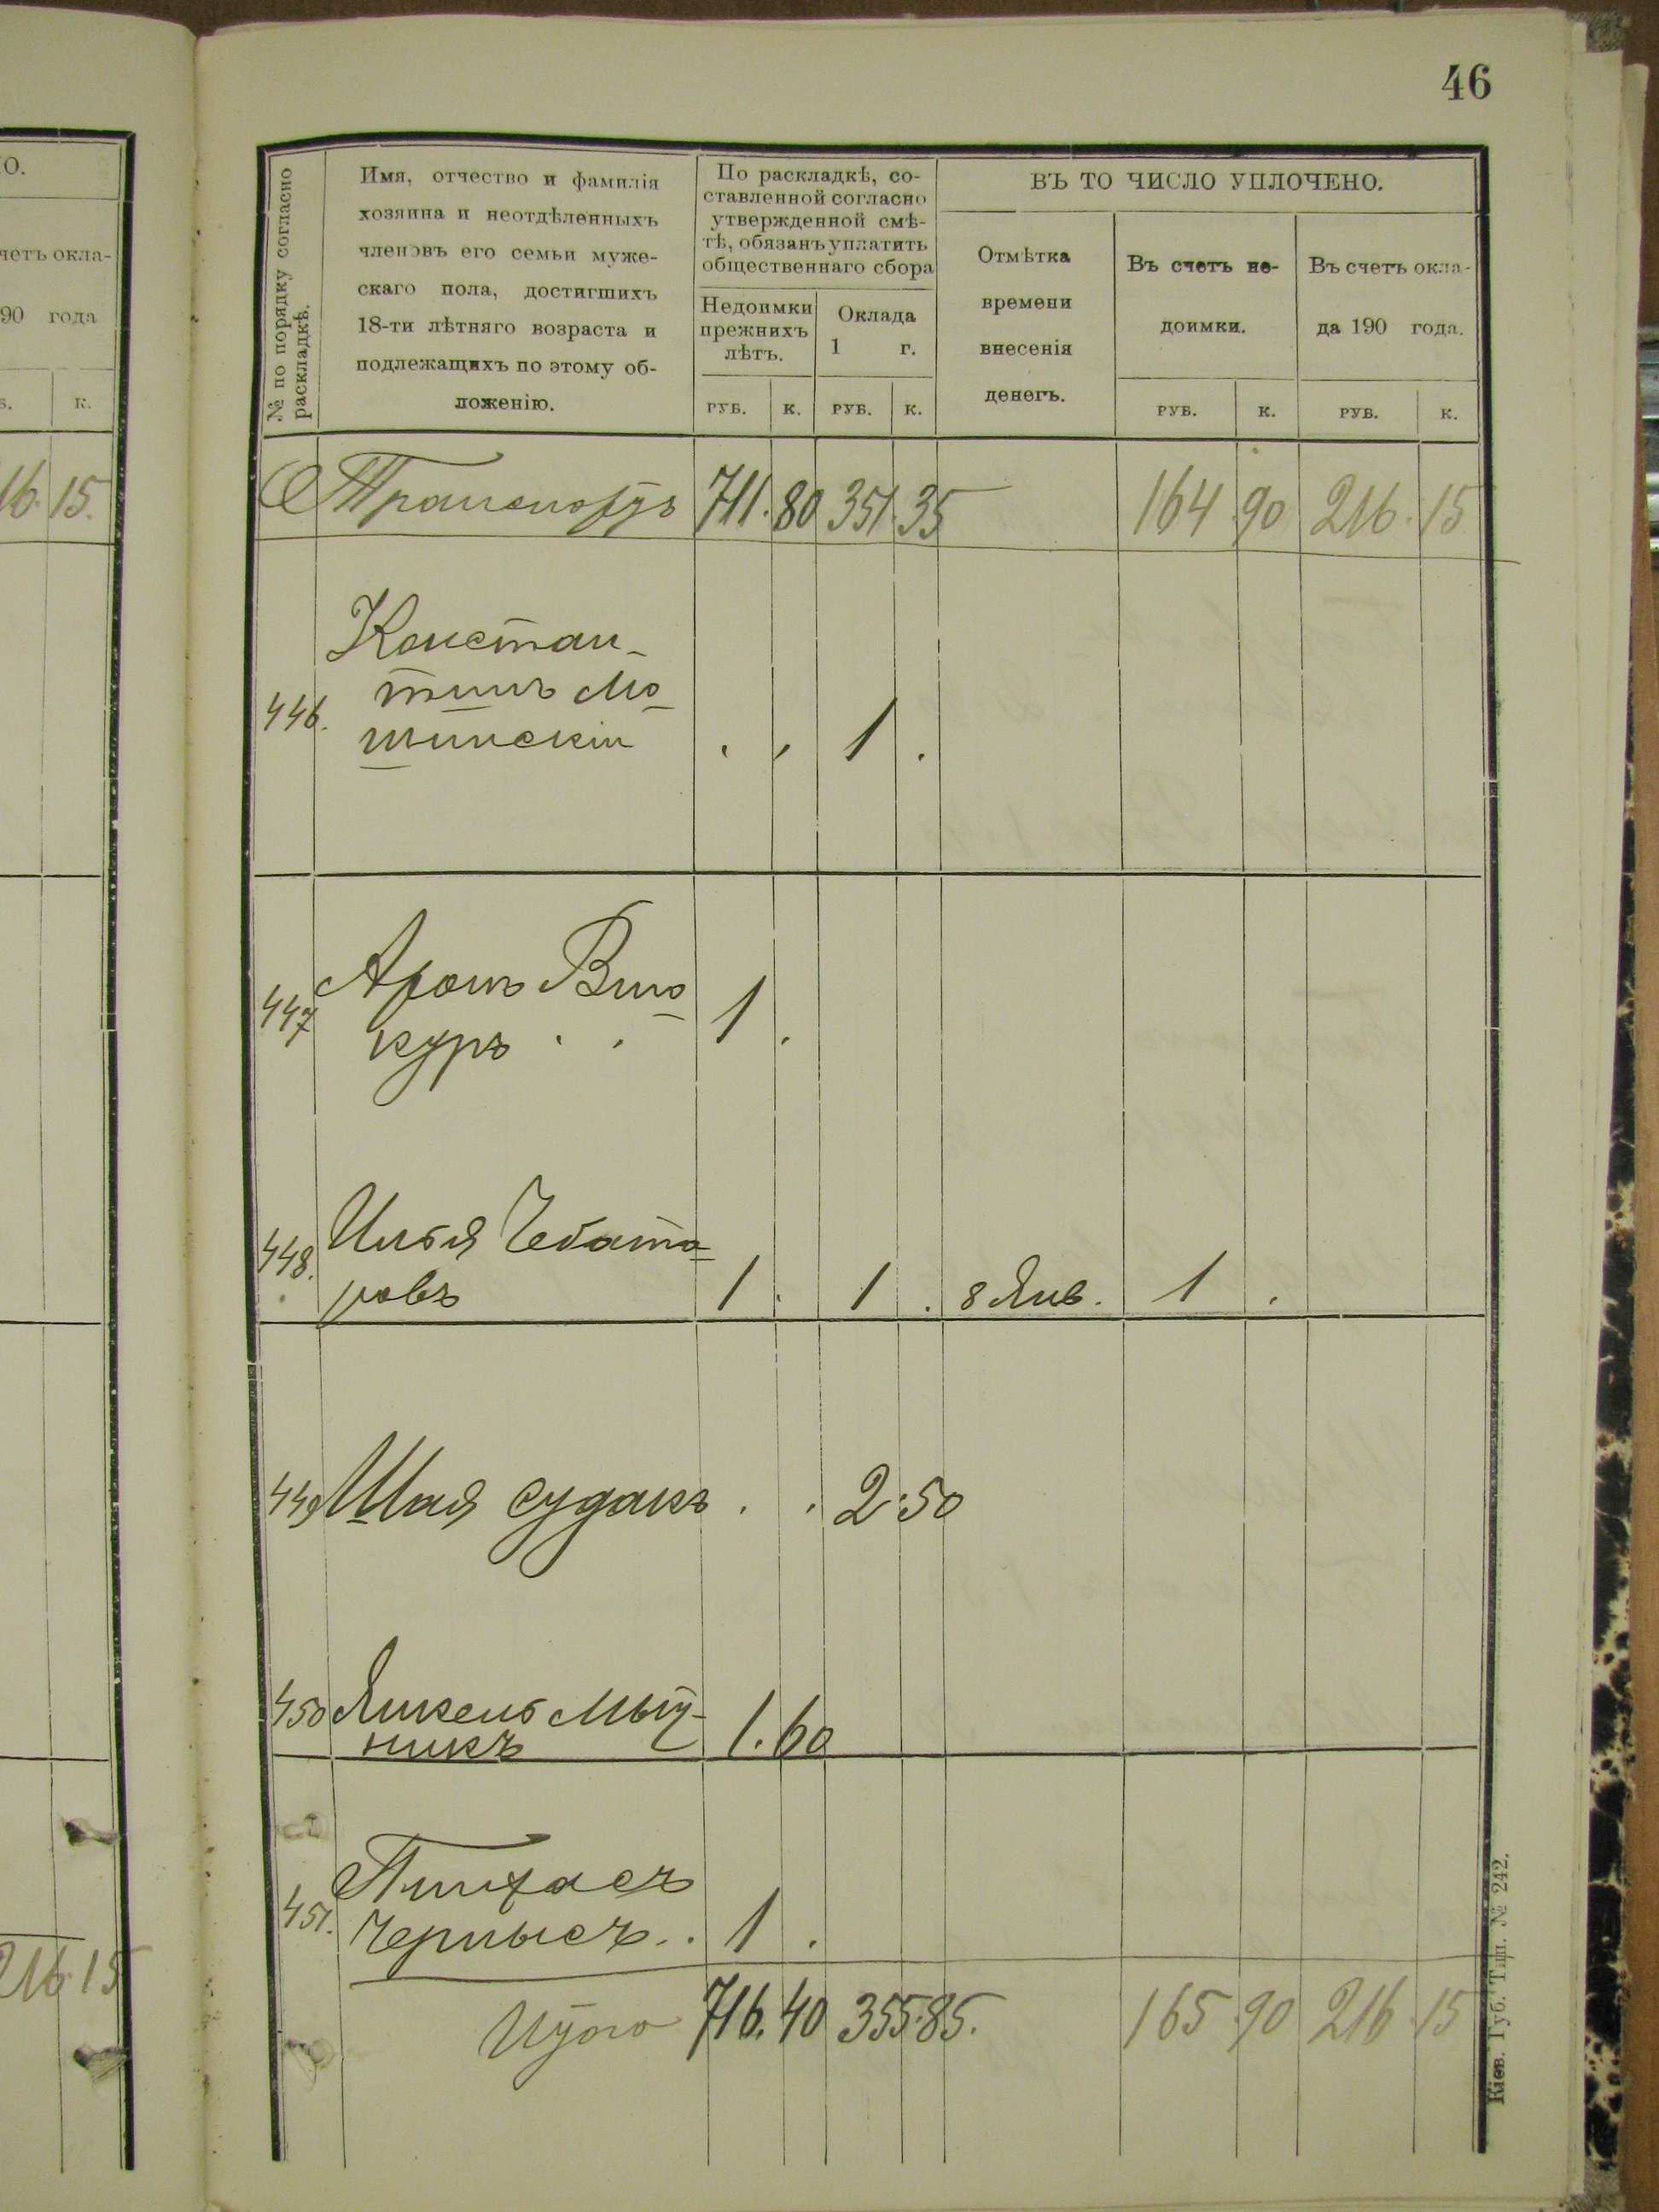 46
О.
четъ окла-
90 года
к.
16.15.
216.15
№ по порядку согласно
раскладкѣ.
Имя, отчество и фамилія
хозяина и неотдѣленныхъ
членовъ его семьи муже-
скаго пола, достигшихъ
18-ти лѣтняго возраста и
подлежащихъ по этому об-
ложенію.
По раскладкѣ, со-
ставленной согласно
утвержденной смѣ-
тѣ, обязанъ уплатить
общественнаго сбора
Недоимки
прежнихъ
лѣтъ.
Оклада
1 г.
ВЪ ТО ЧИСЛО УПЛОЧЕНО.
Отмѣтка
времени
внесенія
денегъ.
Въ счетъ не-
доимки.
Въ счетъ окла-
да 190 года.
РУБ. К. РУБ. К. РУБ. К. РУБ. К.
Транспортъ 711.80 351.35 164.90 216.15
Констан-
тинъ Мо-
446.
шинскій . . 1 .
Аронъ Вино-
447
куръ . . 1 .
Илья Чебата-
448.
ровъ 1 . 1 . 8 Янв. 1 .
449 Шая Судакъ . . 2.50
450 Янкель Мыт-
никъ 1.60
Пинхасъ
451.
Чернысъ . . 1 .
Итого 716.40 355.85. 165.90 216.15
Кіев. Губ. Тип. № 242.